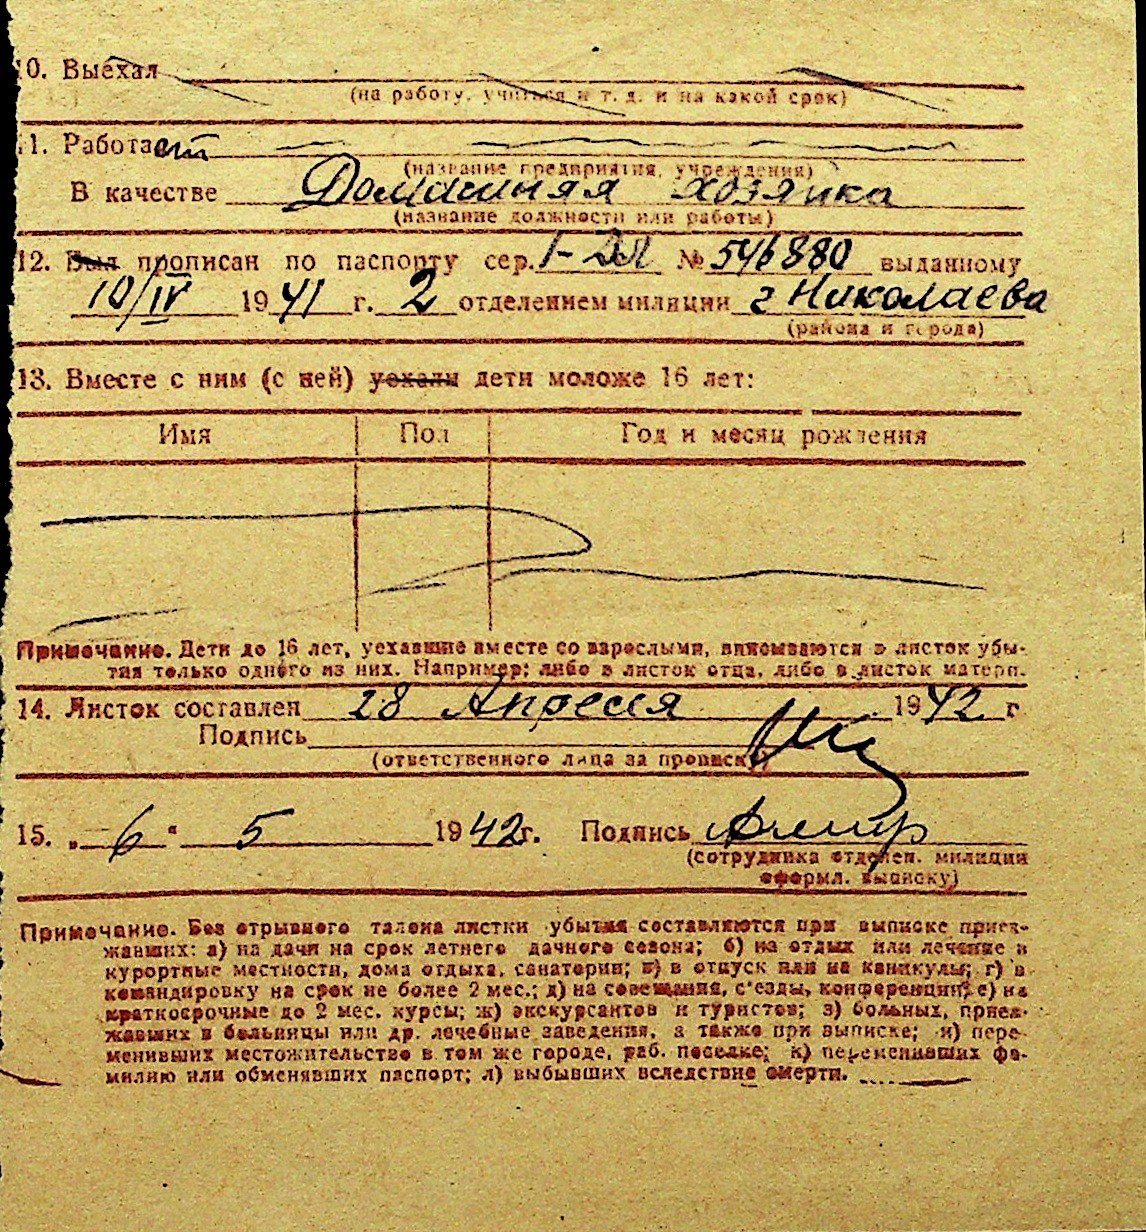 10. Выехал
(на работу, учиться и т. д. и на какой срок)
11. Работает
(название предприятия, учреждения)
В качестве Домашняя хозяйка
(название должности или работы)
12. Был прописан по паспорту сер. I-ДЛ № 546880 выданному
10/IV 1941 г. 2 отделением милиции г Николаева
(района и города)
13. Вместе с ним (с ней) уехали дети моложе 16 лет:
Имя Пол Год и месяц рождения
Примечание. Дети до 16 лет, уехавшие вместе со взрослыми, вписываются в листок убы-
тия только одного из них. Например: либо в листок отца, либо в листок матери.
14. Листок составлен 28 Апреля 1942 г
Подпись
(ответственного лица за прописку)
15. „ 6 “ 5 1942 г. Подпись
(сотрудника отделен. милиции
оформл. выписку)
Примечание. Без отрывного талона листки убытия составляются при выписке приез-
жавших: а) на дачи на срок летнего дачного сезона; б) на отдых или лечение в
курортные местности, дома отдыха, санатории; в) в отпуск или на каникулы; г) в
командировку на срок не более 2 мес.; д) на совещания, с'езды, конференции; е) на
краткосрочные до 2 мес. курсы; ж) экскурсантов и туристов; з) больных, приез-
жавших в больницы или др. лечебные заведения, а также при выписке; и) пере-
менивших местожительство в том же городе, раб. поселке; к) переменивших фа-
милию или обменявших паспорт; л) выбывших вследствие смерти.